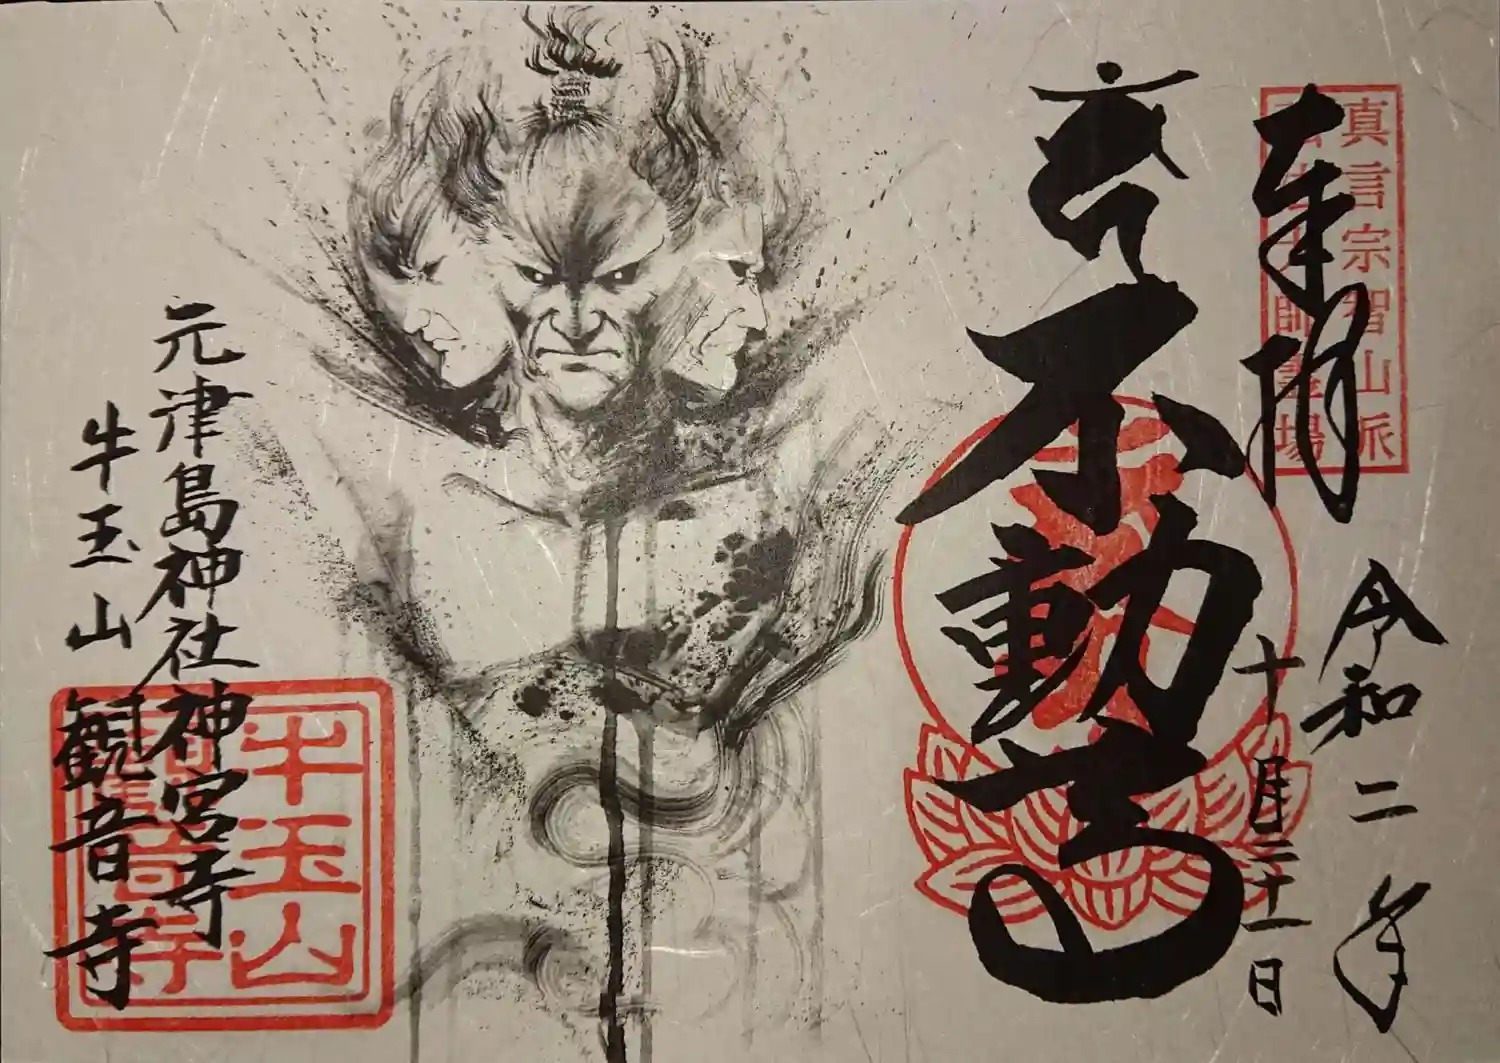 奉拝
真言宗智山派
師霊場
令和二年
十月二十一日
不動尊
元津島神社神宮寺
牛玉山 観音寺
牛玉山
観音寺